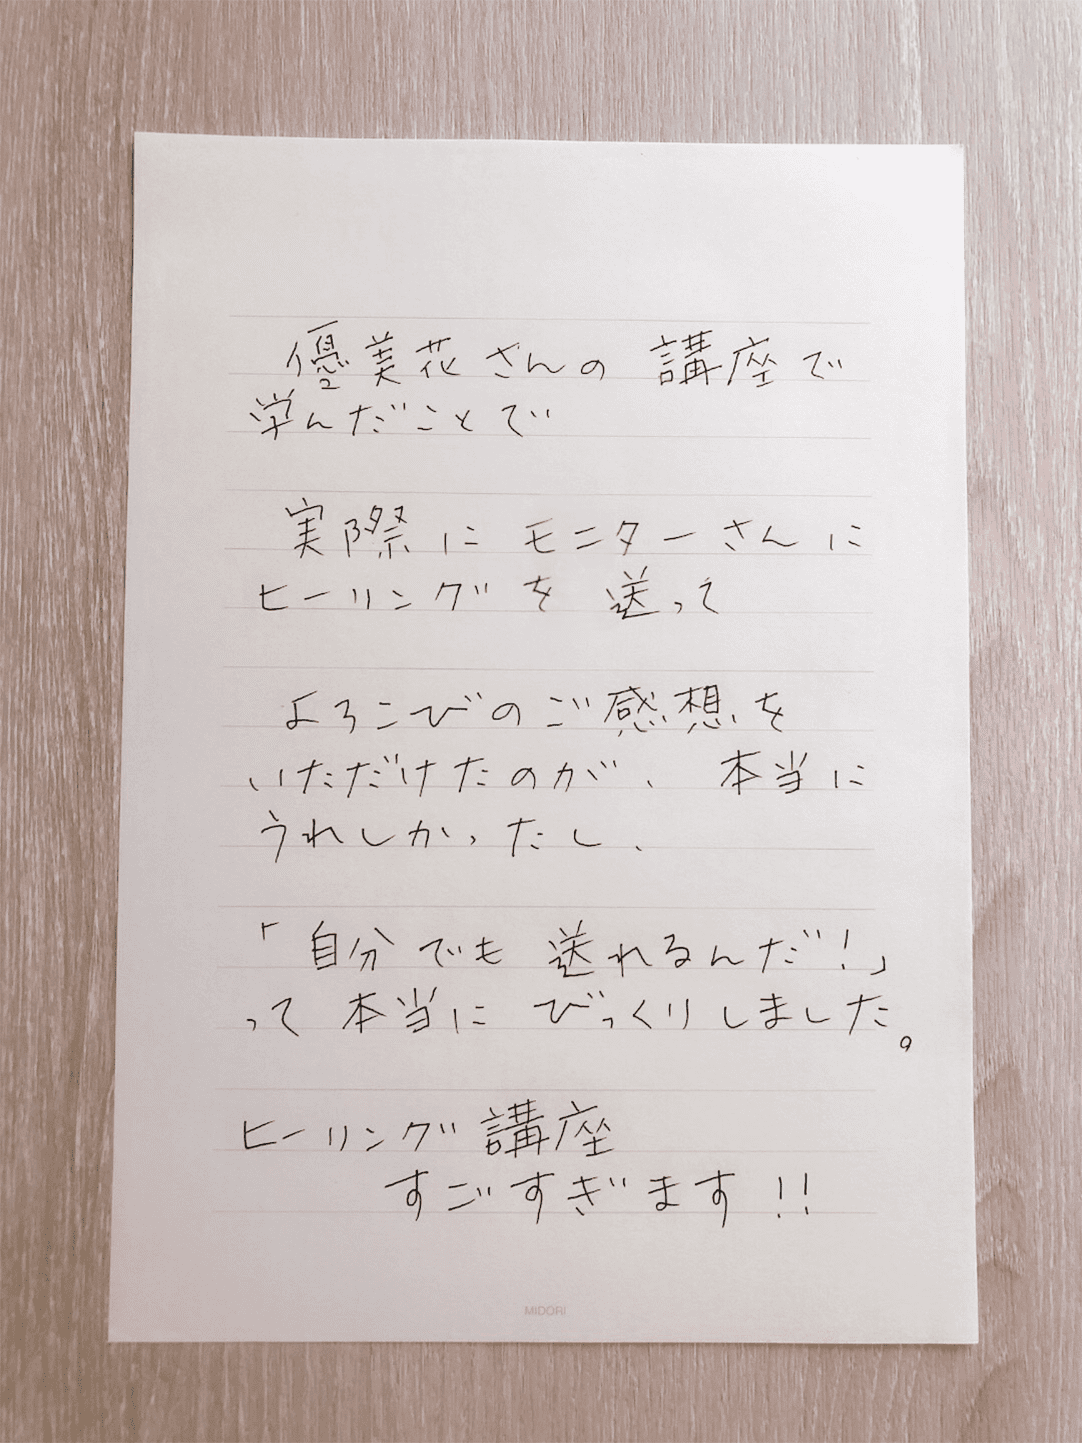 優美花さんの講座で
学んだことで
実際にモニターさんに
ヒーリングを送って
よろこびのご感想を
いただけたのが、本当に
うれしかったし、
「自分でも送れるんだ!」
って本当にびっくりしました。
ヒーリング講座
すごすぎます!!
MIDORI